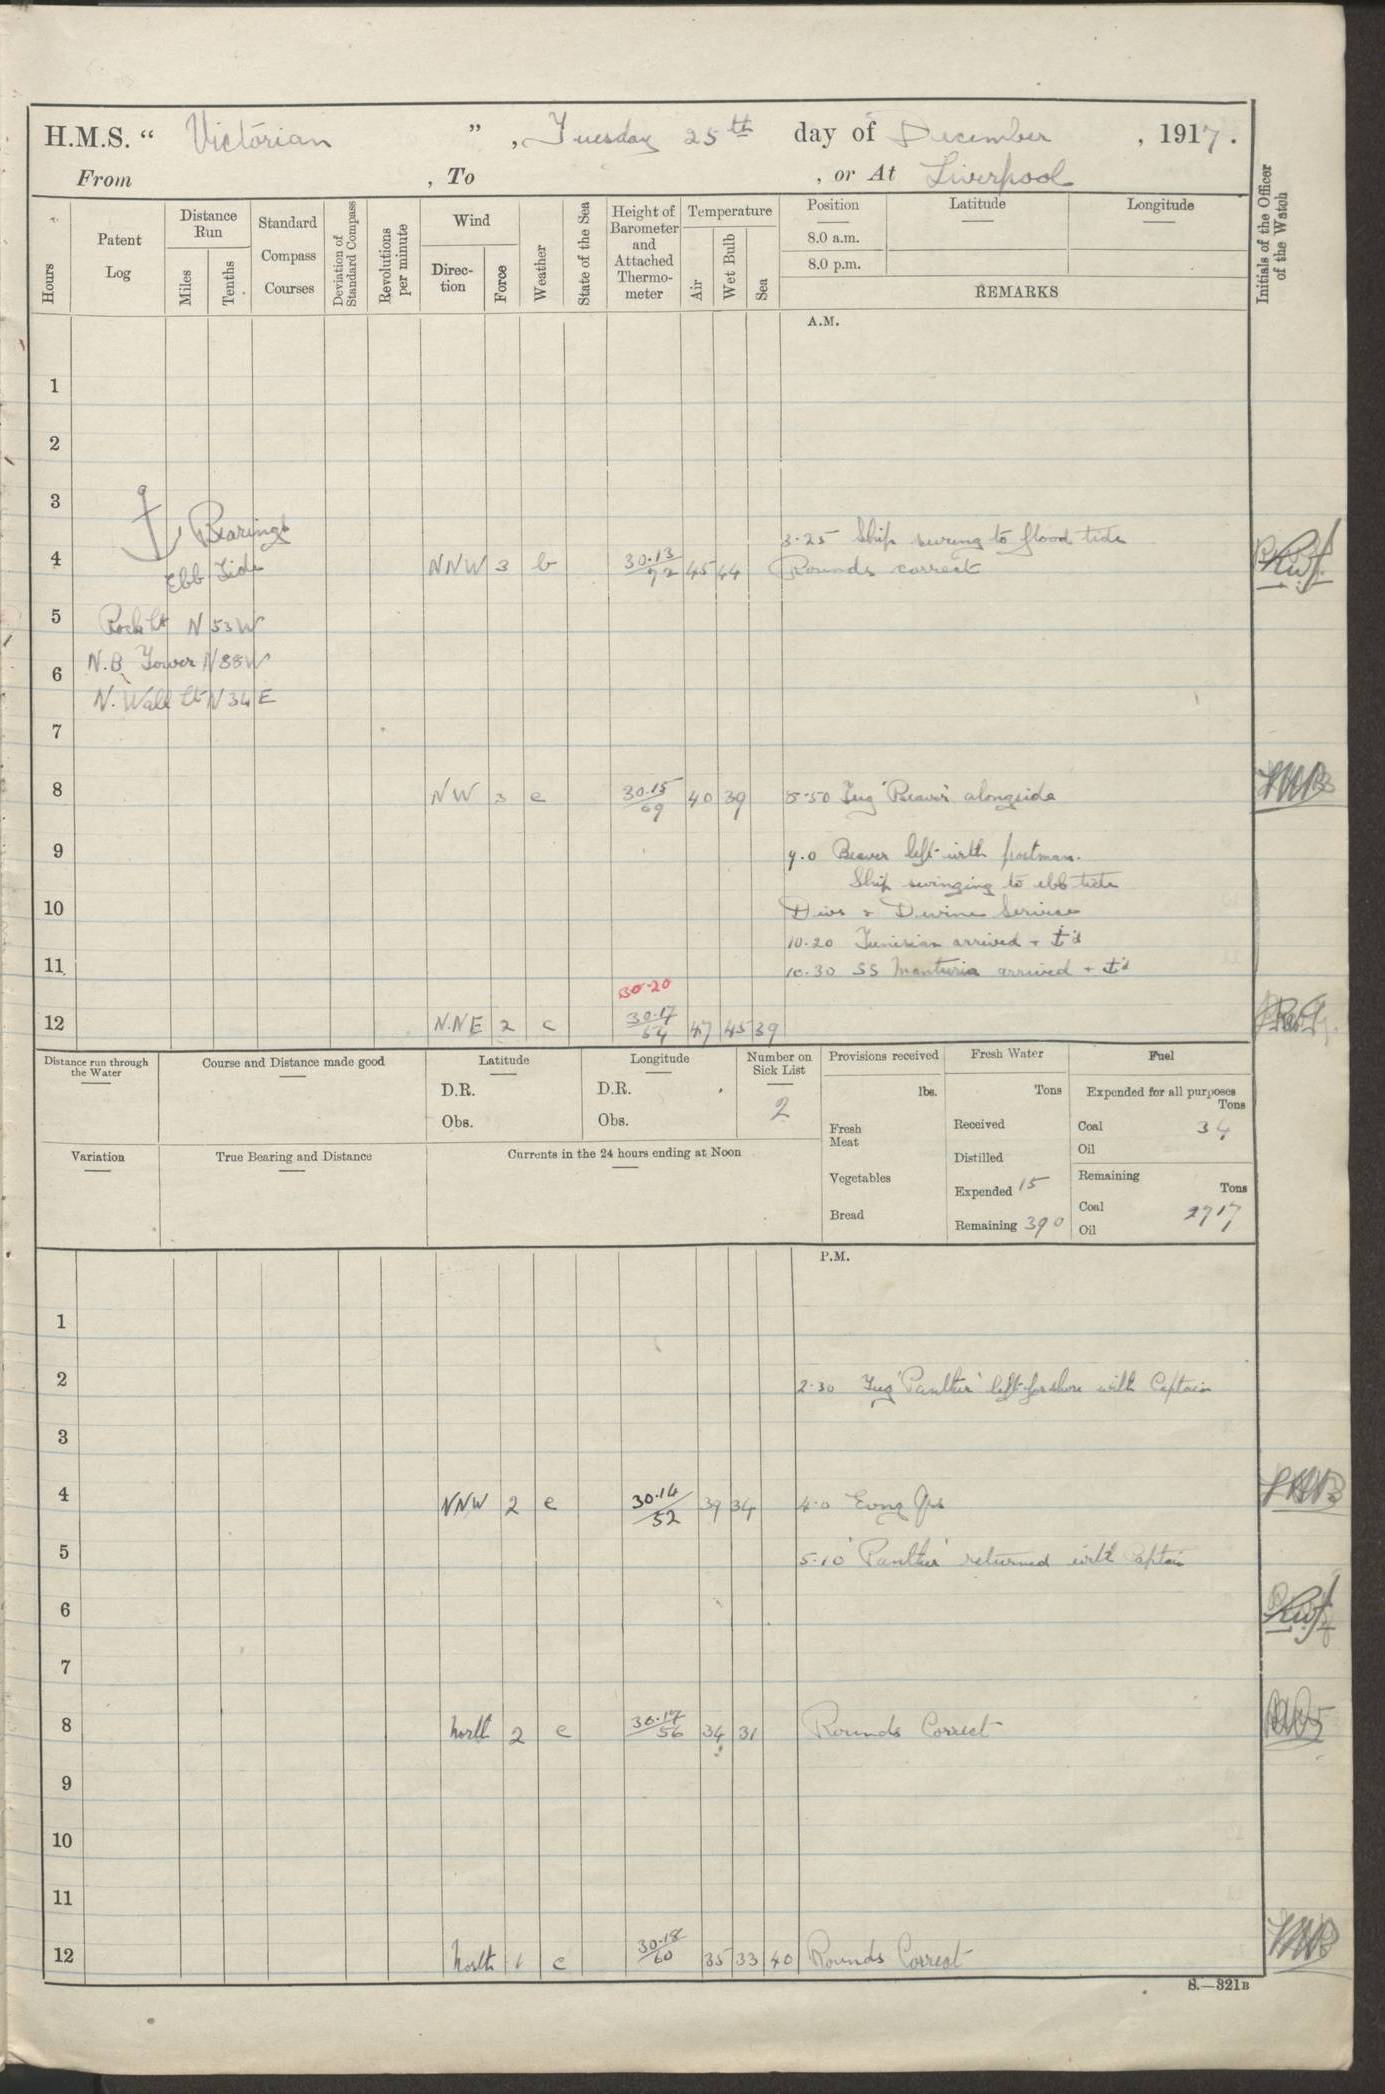 H.M.S. " Victorian ", Tuesday 25th day of December, 1917.
From , To , or At Liverpool
Hours
Patent Log
Distance Run
Miles
Tenths
Standard Compass Courses
Deviation of Standard Compass
Revolutions per minute
Wind
Direction
Force
Weather
State of the Sea
Height of Barometer and Attached Thermometer
Temperature
Air
Wet Bulb
Sea
Position
8.0 a.m.
8.0 p.m.
Latitude
Longitude
REMARKS
Initials of the Officer of the Watch
A.M.
1
2
3
Bearings
3.25 Ship swung to flood tide
4 NNW 3 b 30.13/72 45 44 Rounds correct
Ebb Tide
5 Rock Lt N 53 W
6 N.B. Tower N 88 W
N. Wall Lt N 34 E
7
8 NW 3 c 30.15/69 40 39 8.50 Tug 'Beaver' alongside
9 9.0 Beaver left with postman.
Ship swinging to ebb tide
10 Divs & Devine Service
10.20 Tunisian arrived + ⚓'d
11 10.30 SS arrived + ⚓'d
30.20
12 N.NE 2 c 30.17/54 47 45 39
Distance run through the Water
Course and Distance made good
Latitude
D.R.
Obs.
Longitude
D.R.
Obs.
Number on Sick List
2
Provisions received
lbs.
Fresh Meat
Vegetables
Bread
Fresh Water
Tons
Received
Distilled
Expended 15
Remaining 390
Fuel
Expended for all purposes
Tons
Coal 34
Oil
Remaining
Tons
Coal 2717
Oil
Variation
True Bearing and Distance
Currents in the 24 hours ending at Noon
P.M.
1
2 2.30 Tug 'Panther' left for shore with Captain
3
4 NNW 2 c 30.14/52 39 34 4.0 Evng Qrs
5 5.10 'Panther' returned with Captain
6
7
8 North 2 c 30.17/56 34 31 Rounds Correct
9
10
11
12 North 1 c 30.18/60 35 33 40 Rounds Correct
S.—321B